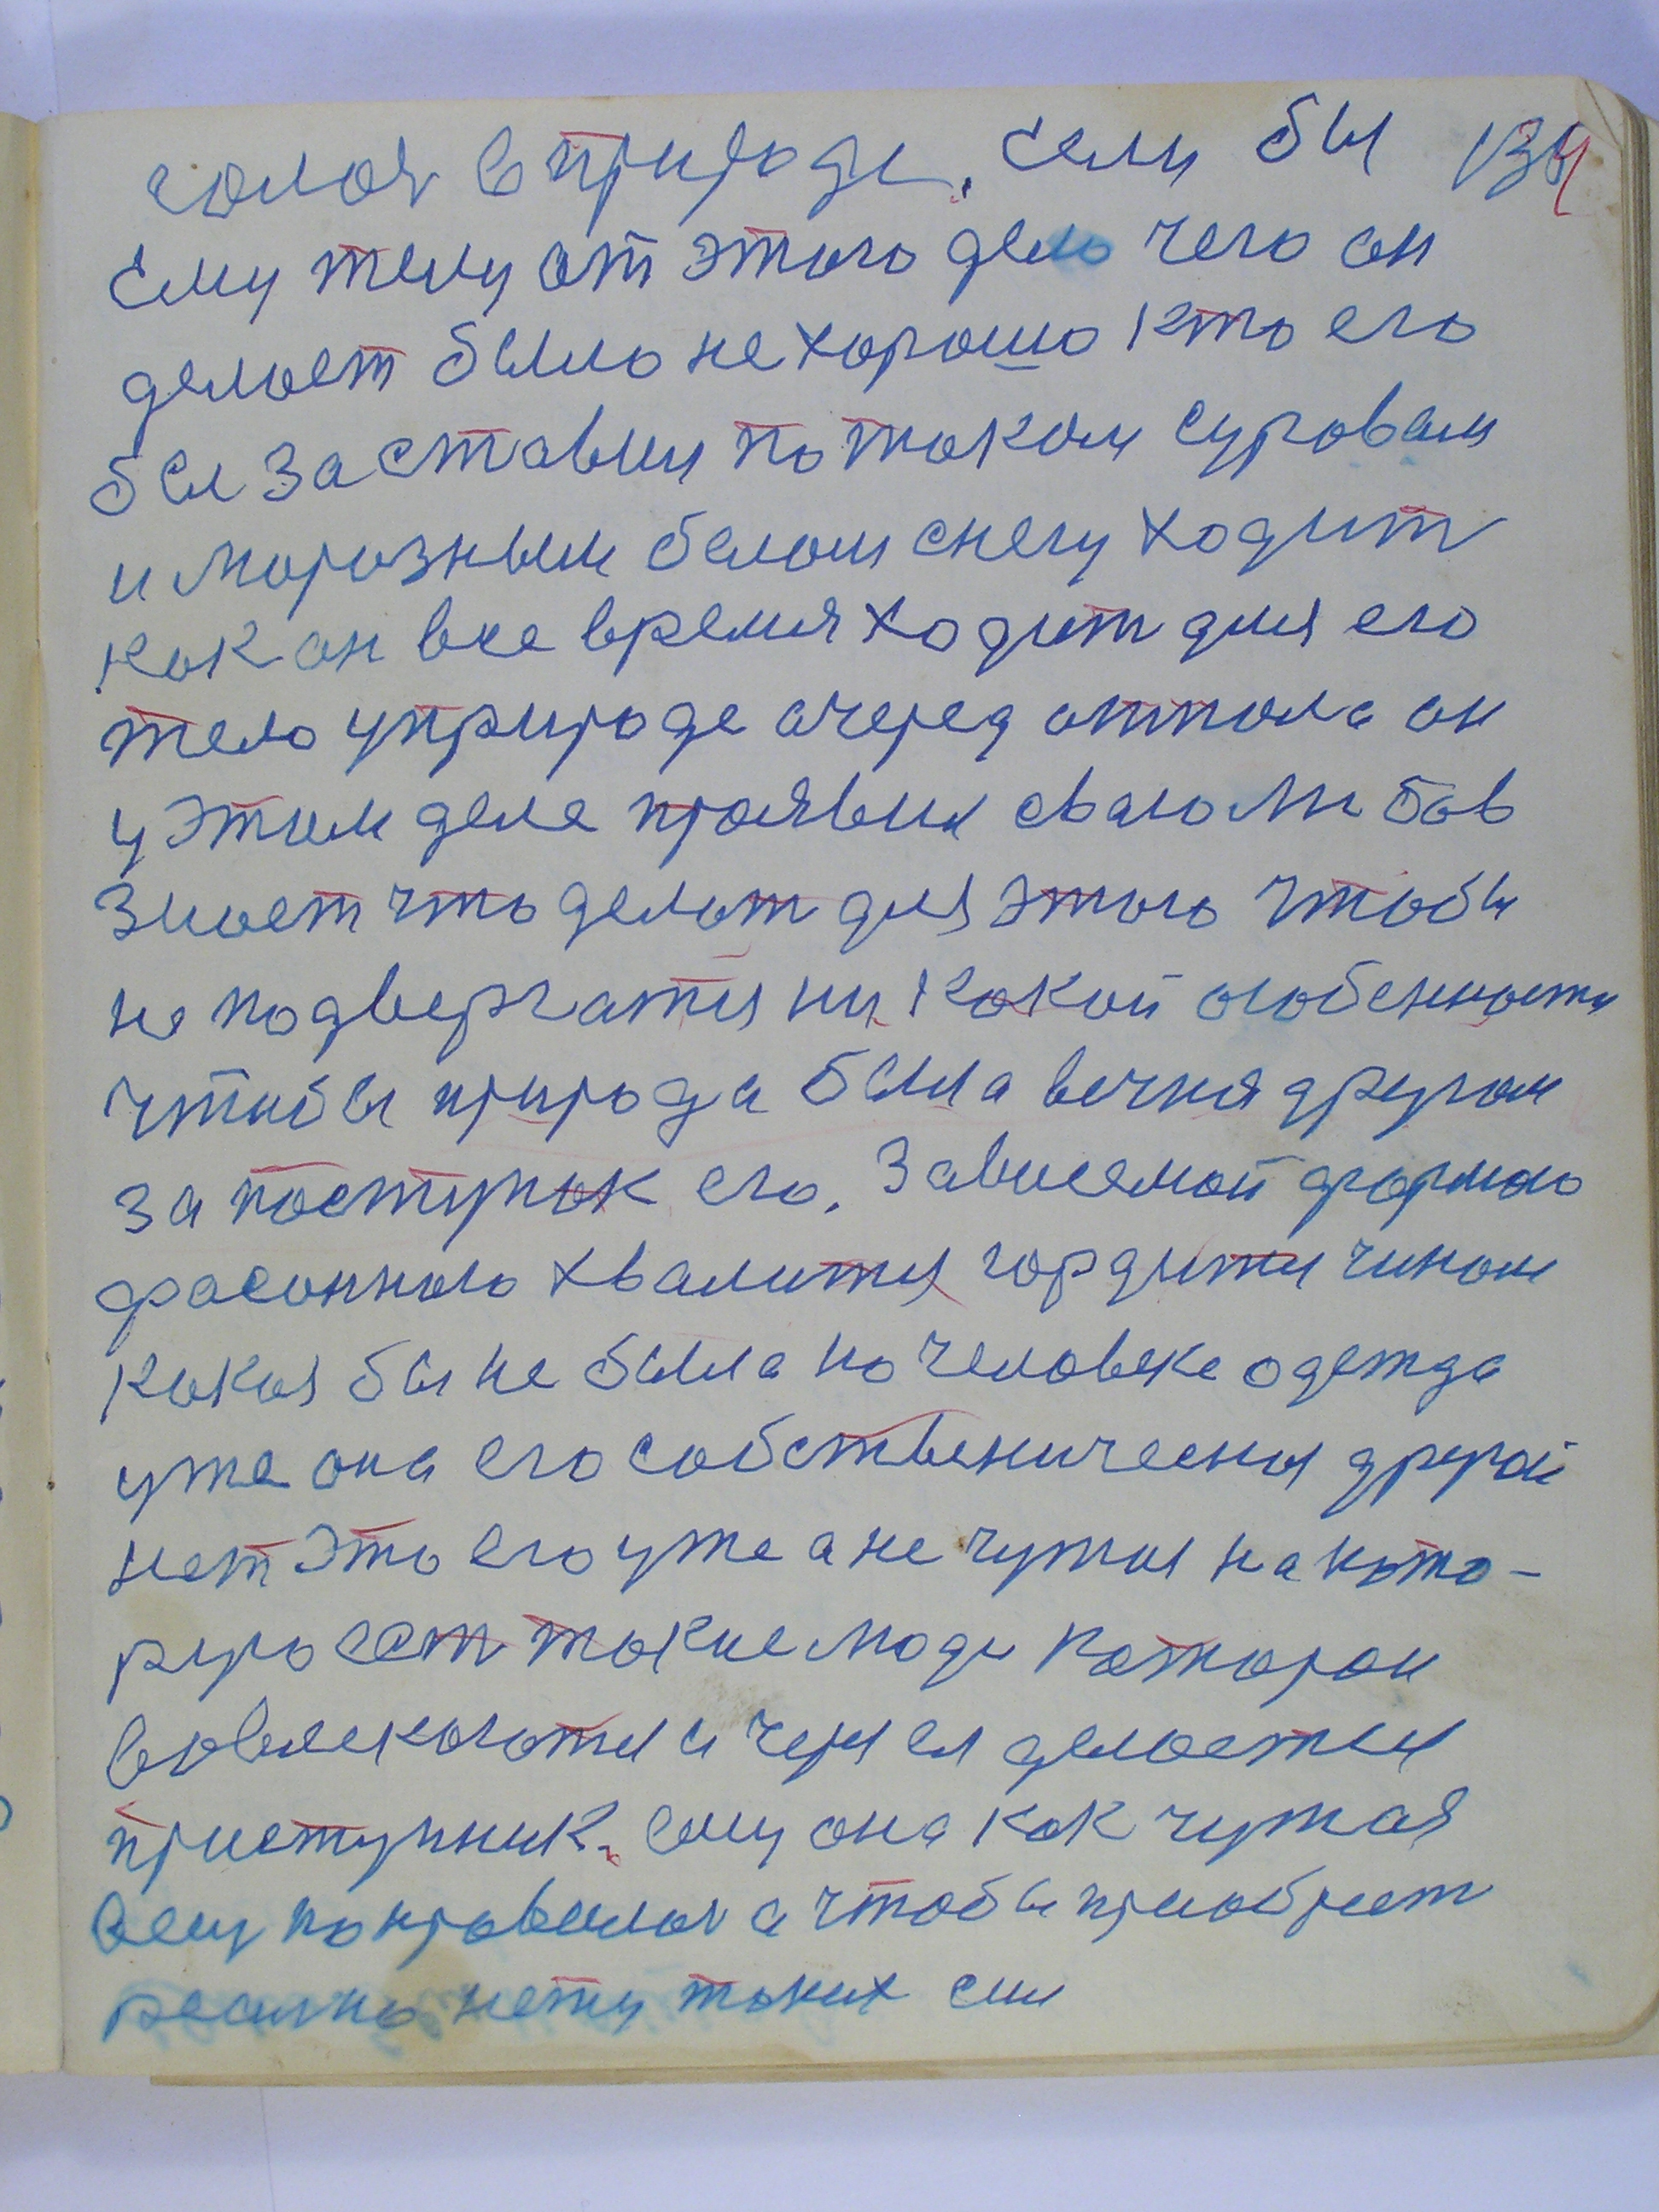 самоя в природе. Если бы 134
Ему телу от этого дело чего он
делает было не хорошо кто его
бы заставил по таком суровом
и морозным белом снегу ходит
как он все время ходит для его
тело у природе очеред оттола он
у этим деле проявил сваю любов
знает что делат для этого чтобы
не подвергатя ни какой особенности
чтобы природа была вечня другом
за поступок его. Зависемой формою
фасонною хвалится гордится чином
какая бы не была на человеке одежда
уже она его собственическая другой
нет это его уже а не чужия на кото-
рую ест такие люди котором
вовлекаются и через ея делается
приступник. ему она как чужая
всему понравилоя а чтобы приобрест
реално нету таких сил